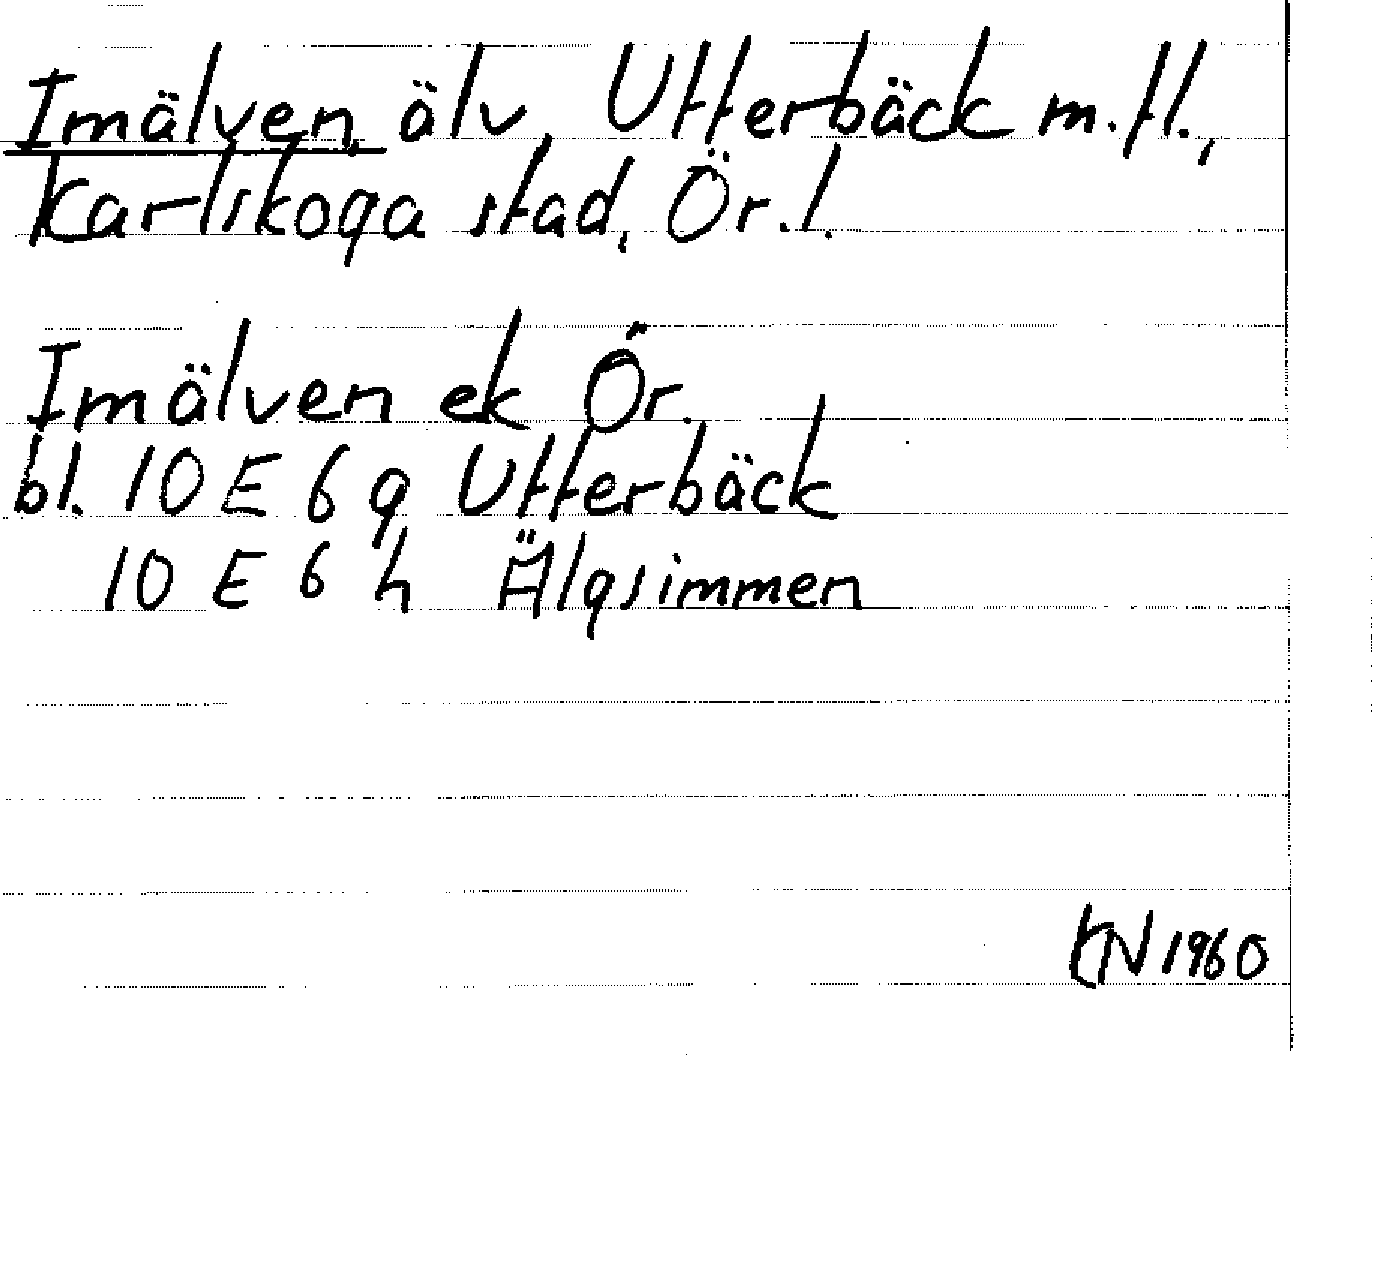 Imälven, älv, Utterbäck m.fl.,
Karlskoga stad, Ör.l.
Imälven ek Ör.
bl. 10 E 6 g Utterbäck
10 E 6 h Älgsimmen
KN 1960